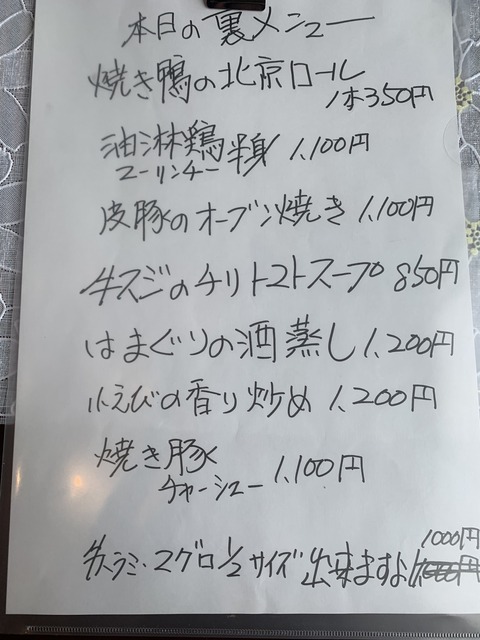 本日の裏メニュー
焼き鴨の北京ロール
1本350円
油淋鶏半身 1,100円
ユーリンチー
皮豚のオーブン焼き 1,100円
牛スジのチリトマトスープ 850円
はまぐりの酒蒸し 1,200円
小えびの香り炒め 1,200円
焼き豚
チャーシュー 1,100円
1000円
マグロ1/2サイズ出来ますよ